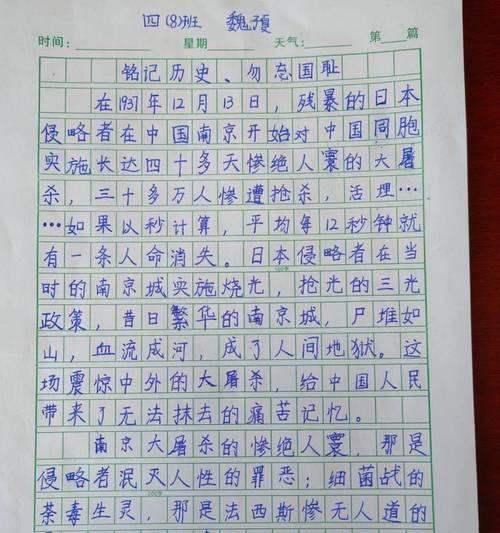 四(8)班 魏预
时间: 星期 天气: 第 篇
铭记历史、勿忘国耻
在1937年12月13日，残暴的日本
侵略者在中国南京开始对中国同胞
实施长达四十多天惨绝人寰的大屠
杀，三十多万人惨遭抢杀，活埋…
…如果以秒计算，平均每12秒钟就
有一条人命消失。日本侵略者在当
时的南京城实施烧光，抢光的三光
政策，昔日繁华的南京城，尸堆如
山，血流成河，成了人间地狱。这
场震惊中外的大屠杀，给中国人民
带来了无法抹去的痛苦记忆。
南京大屠杀的惨绝人寰，那是
侵略者泯灭人性的罪恶；细菌战的
荼毒生灵，那是法西斯惨无人道的